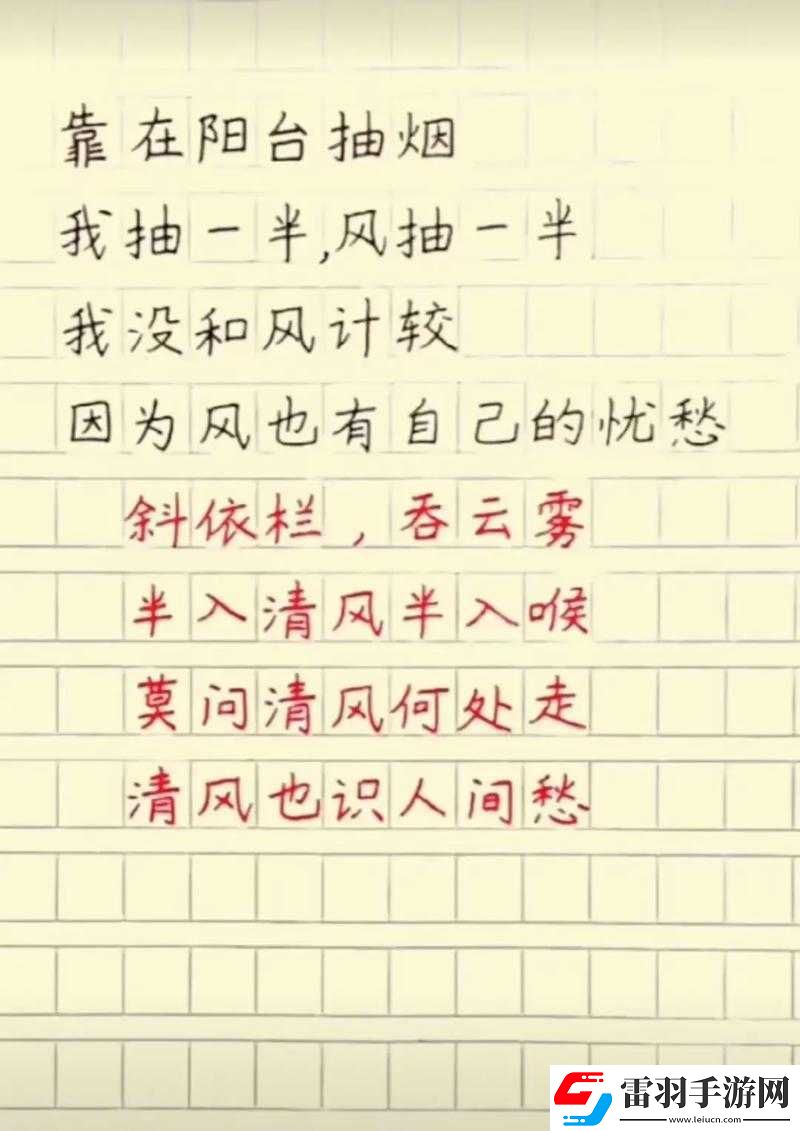 靠在阳台抽烟
我抽一半,风抽一半
我没和风计较
因为风也有自己的忧愁
斜依栏，吞云雾
半入清风半入喉
莫问清风何处走
清风也识人间愁
雷羽手游网
www.leiucn.com